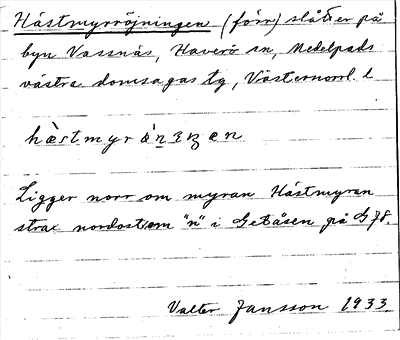 Hästmyrröjningen (förr) slåtter på
byn Vassnäs, Haverö sn, Medelpads
västra domsagas tg, Västernorrl. l
Ligger norr om myran Hästmyran
strax nordost om "n" i Getåsen på G78.
Valter Jansson 1933.